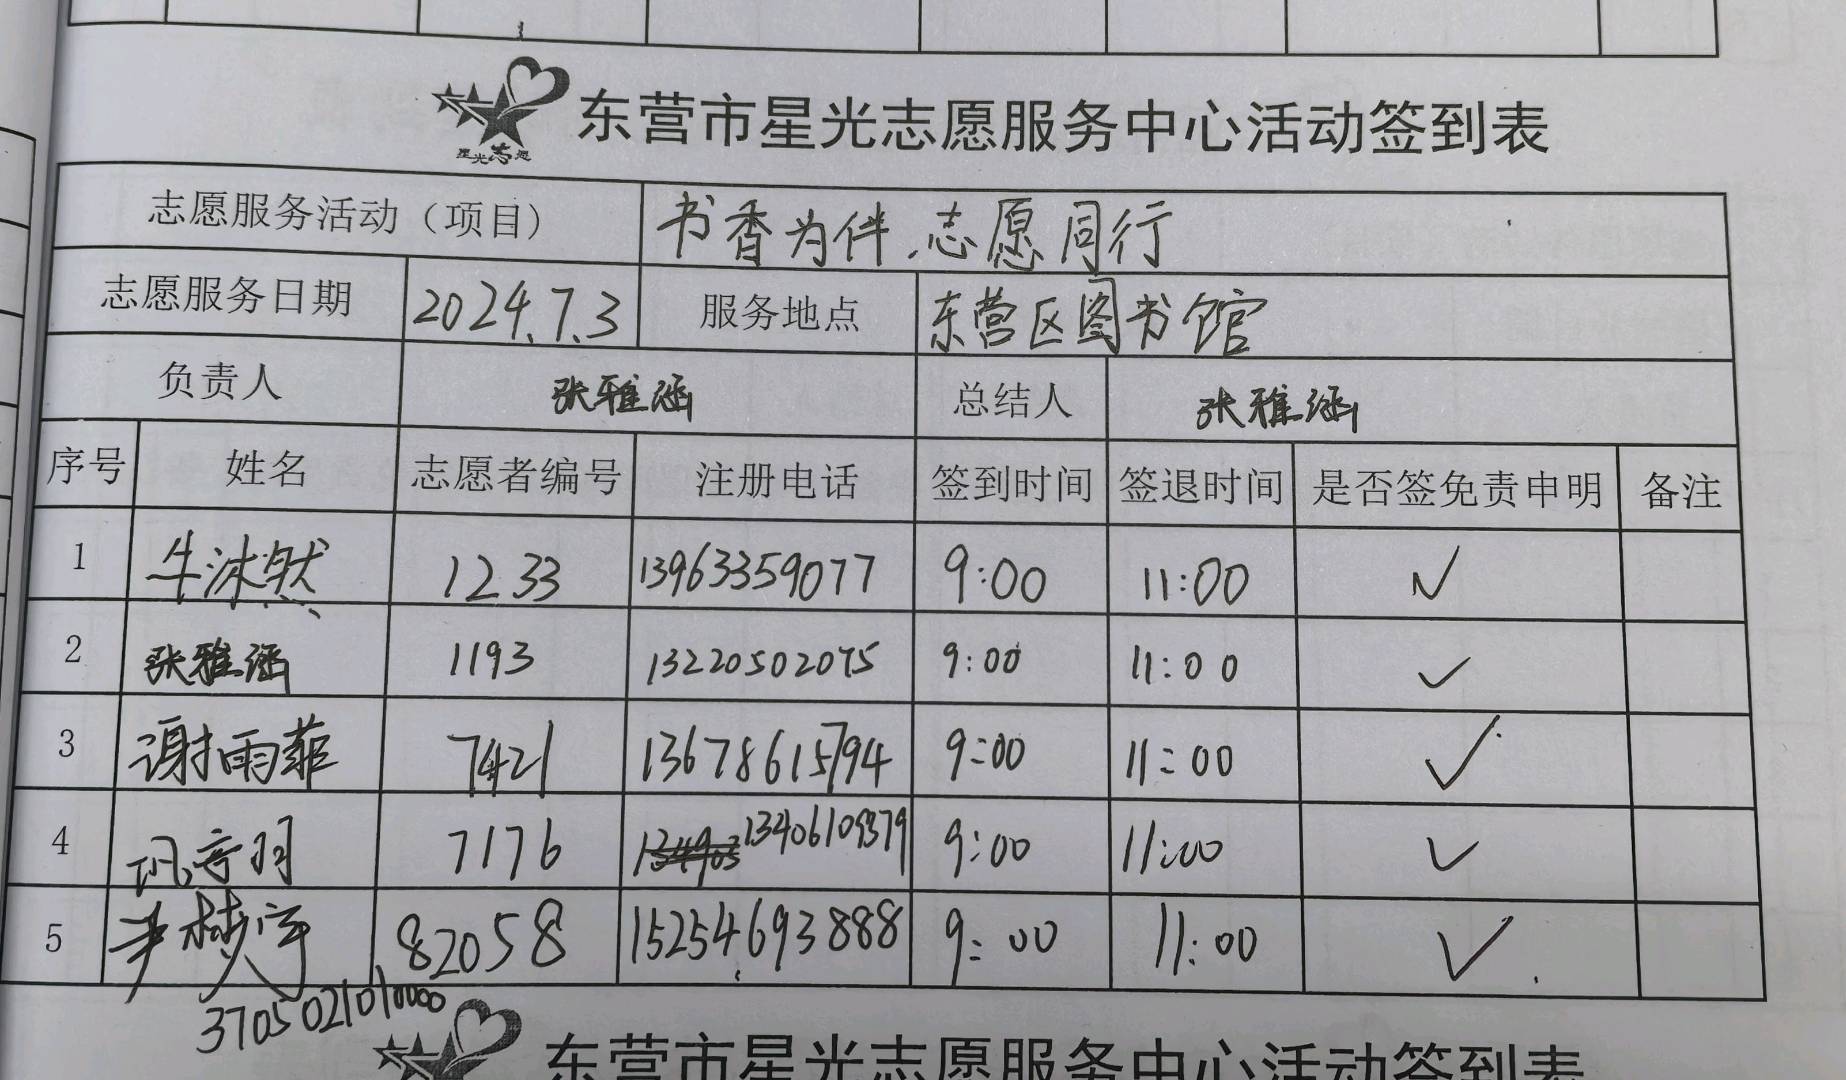 星光志愿
东营市星光志愿服务中心活动签到表
志愿服务活动（项目） 书香为伴.志愿同行
志愿服务日期 2024.7.3 服务地点 东营区图书馆
负责人 张雅涵 总结人 张雅涵
序号 姓名 志愿者编号 注册电话 签到时间 签退时间 是否签免责申明 备注
1 牛沐然 1233 13963359077 9:00 11:00 ✓
2 张雅涵 1193 13220502075 9:00 11:00 ✓
3 谢雨菲 7421 13678615794 9:00 11:00 ✓
4 7176 13406109379 9:00 11:00 ✓
5 尹梦宇 82058 15254693888 9:00 11:00 ✓
3705021010000
东营市星光志愿服务中心活动签到表